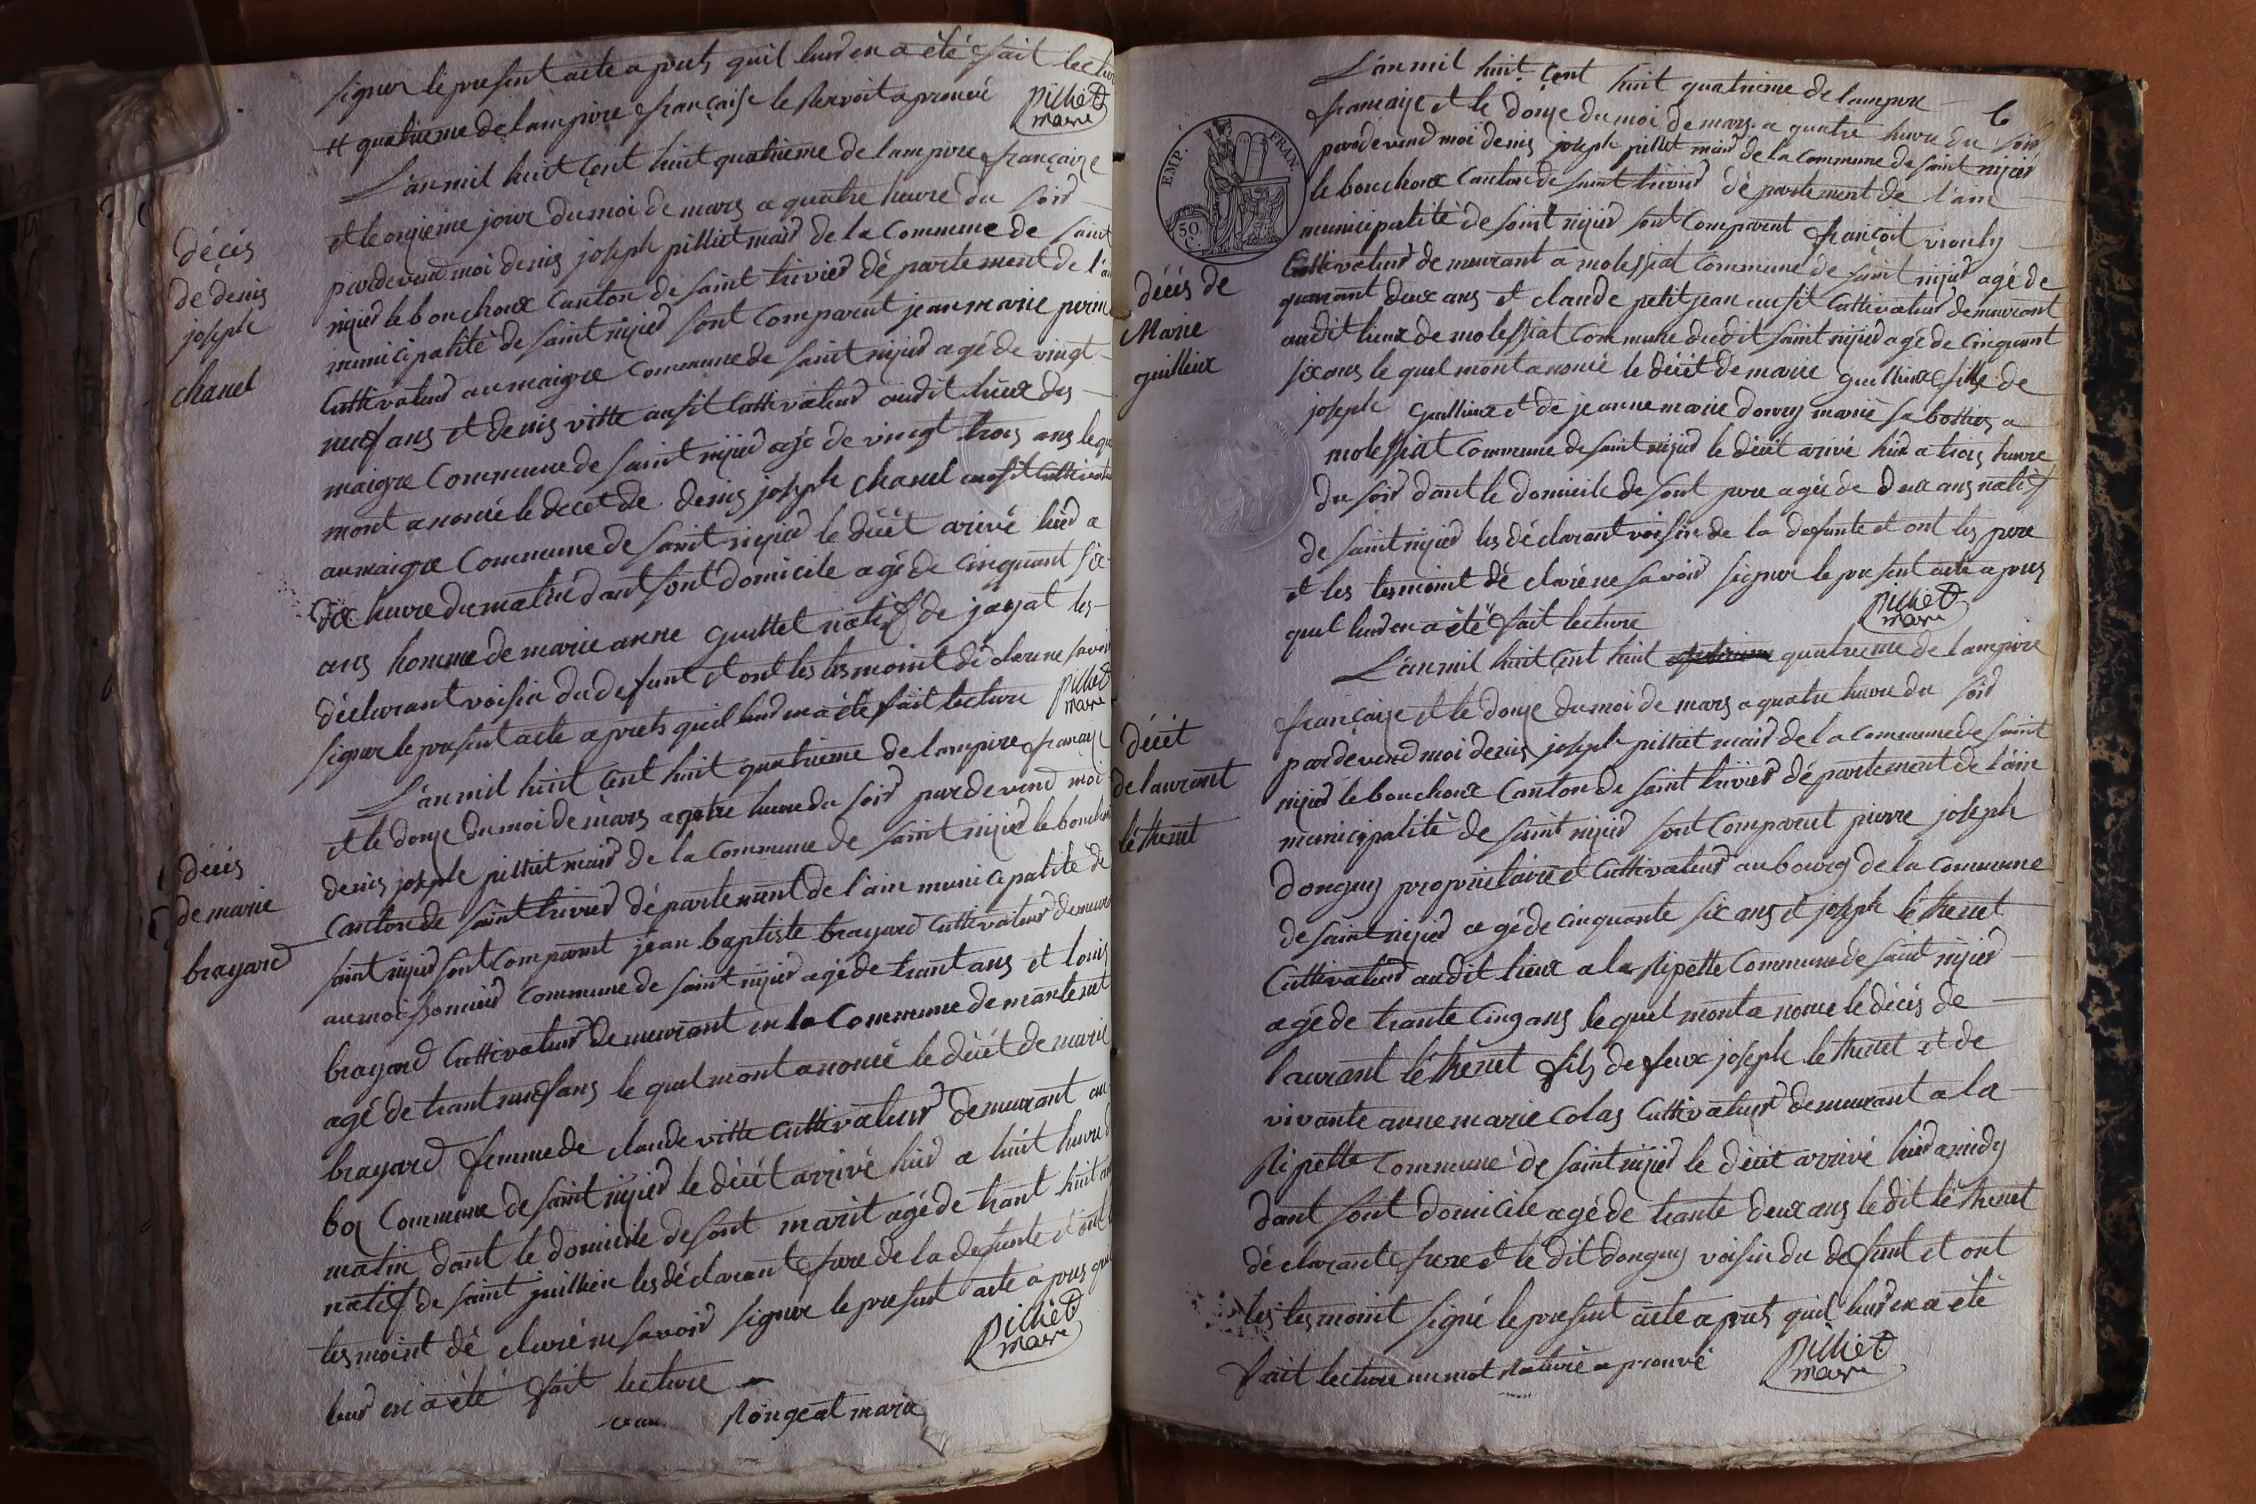 signer le present acte a prets quil leurd en a été fait lectur
# quatrieme de lampire française le renvoit aprouvé
pilliet
maire
L'an mil huit cent huit quatrieme de lampire française
et le onzieme jour du moi de mars a quatre heure du soird
décés
de denis
joseph
chanel
pardevend moi denis joseph pilliet maird de la Commune de saint
nizied le bouchoux Canton de saint trivied dé partement de l'ai
municipalité de saint nizied sont Comparent jean marie
Cultivateurd au maigre Commune de saint nizied agé de vingt
neuf ans et denis vitte ausit Cultivateurd audit lieux des
maigre Commune de saint nizied agé de vingt trois ans le qu
mont a noncé le décet de denis joseph chanel ausit Cultivateu
au maigre Commune de saint nizied le décét arivé hierd a
dix heure du matin dant sont domicile agé de cinquant six
ans homme de marie anne guillet natif de jayat les
déclarant voisin du defunt et ont les tesmoint dé clare ne savoir
signer le present acte a prets quil leurd en a été fait lecture
pilliet
maire
L'an mil huit Cent huit quatrieme de lampire française
et le donze du moi de mars a qatre heure du soird pardevend moi
décés
de marie
brayard
denis joseph pilliet maird de la Commune de saint nizied le bouchoux
Canton de saint trivied dé partement de l'ain municipalité de
saint nizied sont Comparent jean baptiste brayard Cultivateurd demeur
au moissonnied Commune de saint nizied agé de trant ans et louis
brayard Cultivateurd demeurant en la Commune de mantenet
agé de trant neuf ans le quel mont a noncé le décét de marie
brayard femme de claude vitte Cultivateurd demeurant au
boz Commune de saint nizied le décét arrivé hierd a huit heure d
matin dant le domicile de sont marit agé de trant huit an
natif de saint juillien les déclarant frere de la defunte et ont l
tesmoint dé claré ne savoir signer le present acte a prets qui
leurd en a été fait lecture
pilliet
maire
rongeat maire
6
L'an mil huit Cent huit quatrieme de lampire
française et le donze du moi de mars a quatre heure du soird
pardevend moi denis joseph pilliet maird de la Commune de saint nizied
EMP. FRAN.
50 C.
le bouchoux Canton de saint trivied dé partement de l'ain
municipalité de saint nizied sont Comparent françoit viouly
Cultivateurd demeurant a molessiat Commune de saint nizied agé de
décés de
Marie
guillieux
quarant deux ans et claude petitjean ausit Cultivateurd demeurant
audit lieux de molessiat Commune dudit saint nizied agé de cinquant
six ans le quel mont a noncé le décét de marie guillieux fille de
joseph guillieux et de jeanne marie donguy marié sa a
molessiat Commune de saint nizied le décét arivé hier a trois heure
du soird dant le domicile de sont pere agée de deux ans natif
de saint nizied les déclarant voisin de la defunte et ont les pere
et les tesmoint dé claré ne savoird signer le present acte a prets
quil leurd en a été fait lecture
pilliet
maire
L'an mil huit Cent huit quatrieme de lampire
française et le donze du moi de mars a quatre heure du soird
décét
de laurant
léthenet
pardevend moi denis joseph pilliet maird de la Commune de saint
nizied le bouchoux Canton de saint trivied dé partement de l'ain
municipalité de saint nizied sont Comparent pierre joseph
donguy proprietaire et Cultivateurd au bourg de la Commune
de saint nizied agé de cinquante six ans et joseph léthenet
Cultivateurd audit lieux a la ripette Commune de saint nizied
agé de trante Cinq ans le quel mont a noncé le décés de
laurant léthenet fils de feux joseph lethenet et de
vivante anne marie Colas Cultivateurd demeurant a la
ripette Commune de saint nizied le décét arrivé hierd a midy
dant sont domicile agé de trante deux ans le dit léthenet
déclarante frere et le dit donguy voisin du defunt et ont
les tesmoint signé le present acte a prets quil leurd en a été
fait lecture un mot raturé a prouvé
pilliet
maire